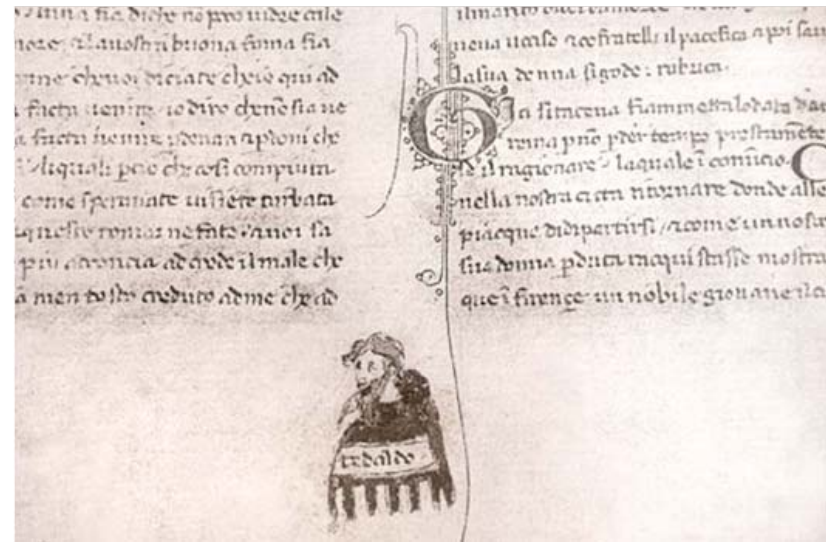 fia diche nō
uostra buona fama fia
che uoi diciate cheio qui ad
facta uenire io diro che nō sia ue
facta uenire p denari e p doni che
liquali pcio che cosi
come sperauate uissiete turbata
romor ne fate auoi sa
piu acconcia ad il male che
tosto creduto ad me che ad
ilmarito
neua ucciso co fratelli il pacefica e poi sau
lasua donna sigode: rubrica.
Gia si taceua fiammetta lodata da
p nō pder tempo prestamēte
il ragionare laquale ī comīcio
nella nostra citta ritornare donde alle
piacque didipartirsi come un nostr
sua donna pduta racquistasse mostra
que ī firençe un nobile giouane ilc
tedaldo